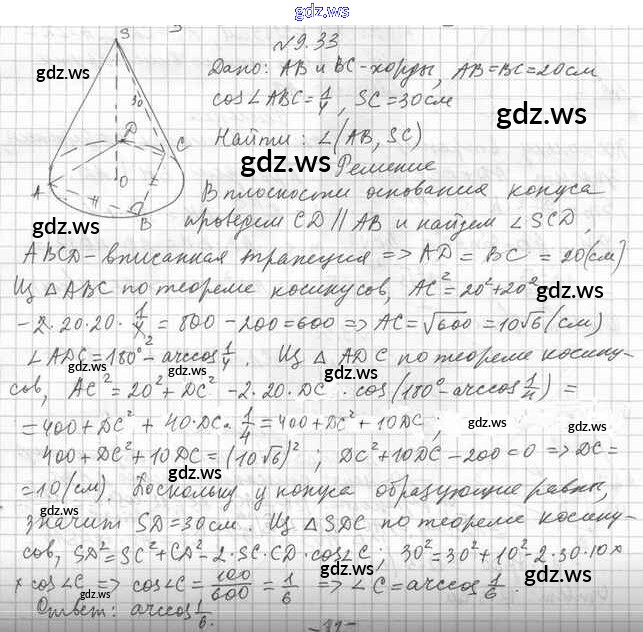 gdz.ws
№9.33
S
Дано: AB и BC - хорды, AB=BC=20см
gdz.ws
cos∠ABC=1/4, SC=30см
30
gdz.ws
Найти: ∠(AB, SC)
D
C
gdz.ws
Решение
A
O
B
В плоскости основания конуса
gdz.ws
проведем CD ∥ AB и найдем ∠SCD,
ABCD - вписанная трапеция => AD = BC = 20(см)
Из △ABC по теореме косинусов, AC²=20²+20²
gdz.ws
-2·20·20·1/4 = 800-200=600 => AC=√600 =10√6(см)
∠ADC=180°-arccos1/4. Из △ADC по теореме косину-
gdz.ws gdz.ws gdz.ws
сов, AC²=20²+DC²-2·20·DC·cos(180°-arccos1/4) =
=400+DC²+40·DC·1/4=400+DC²+10DC;
gdz.ws gdz.ws
400+DC²+10DC=(10√6)²; DC²+10DC-200=0 => DC=
gdz.ws
=10(см). Поскольку у конуса образующие равны,
значит SD=30см. Из △SDC по теореме косину-
gdz.ws
сов, SD²=SC²+CD²-2·SC·CD·cos∠C; 30²=30²+10²-2·30·10×
gdz.ws gdz.ws
× cos∠C => cos∠C=100/600=1/6 => ∠C=arccos1/6.
gdz.ws
Ответ: arccos1/6.